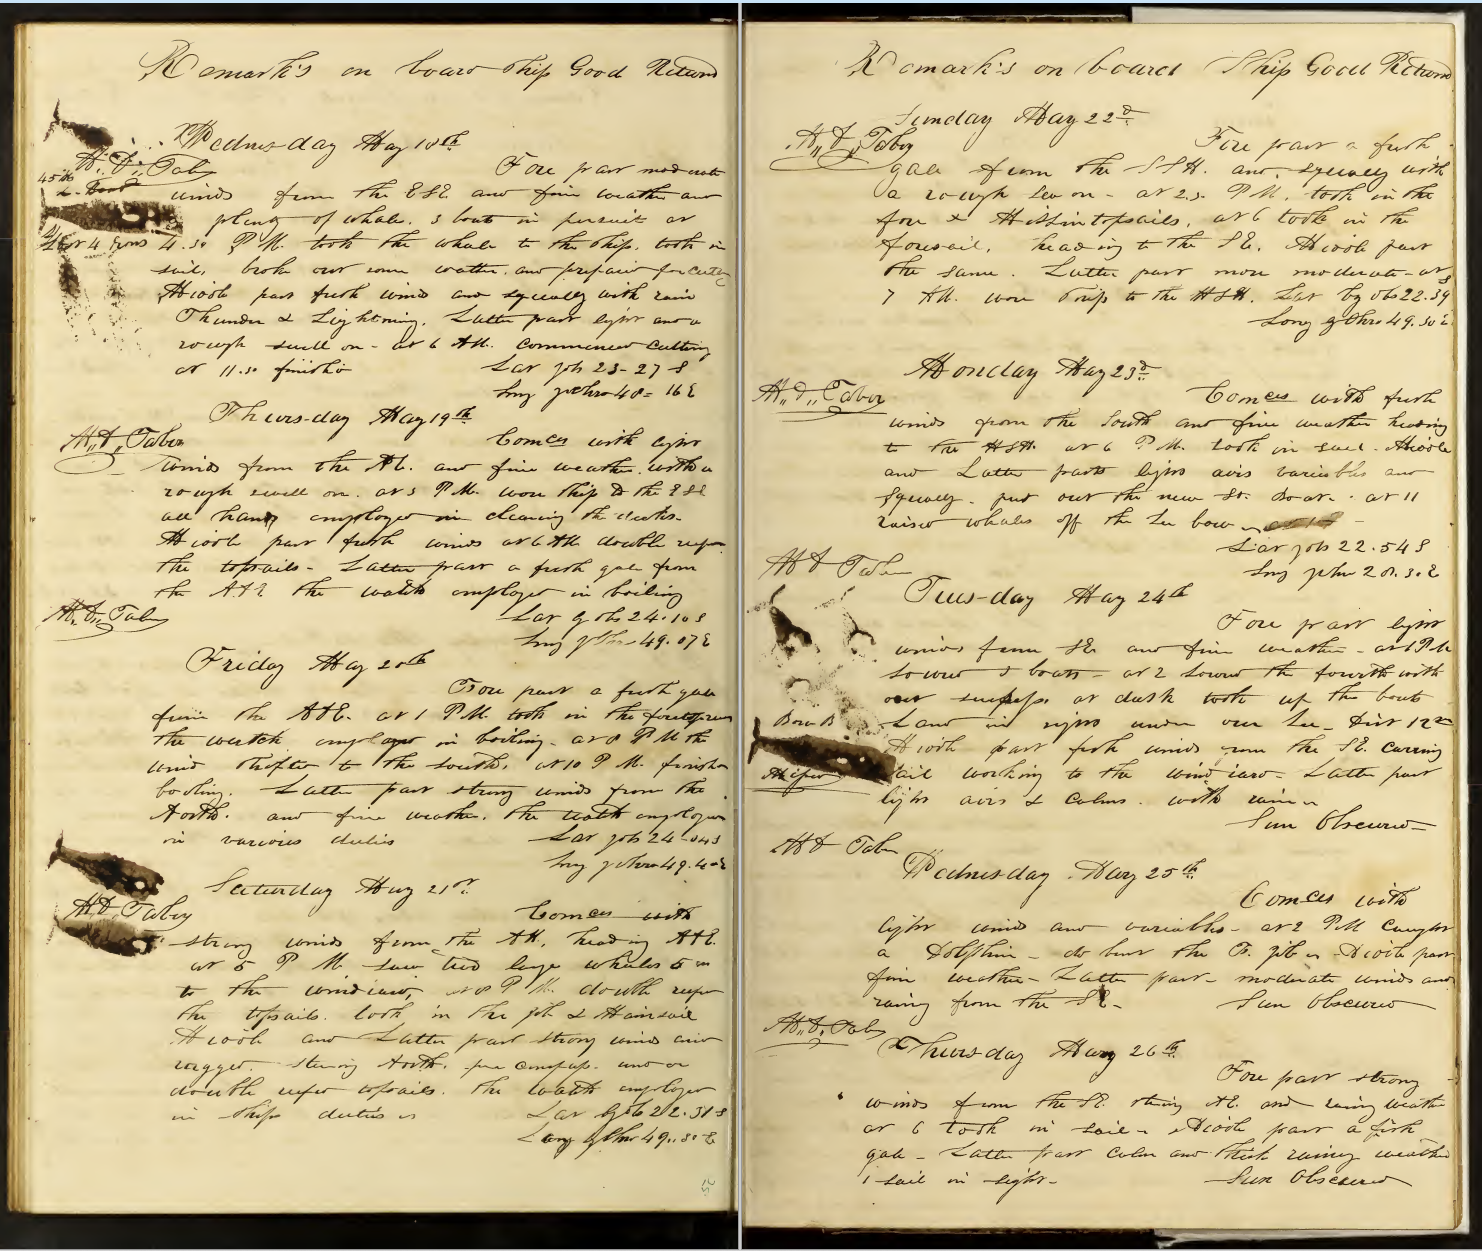 Remark's on board Ship Good Return
Wednesday May 18th
M,, D,, Taber
Fore part moderate
winds from the ESE and fine weather and
plenty of whale. 3 boats in pursuit at
4.30 P M. took the whale to the ship, took in
sail, broke out some watter, and prepaird for cutting
Middle part fresh winds and squally with rain
Thunder & Lightning. Latter part light and a
rough swell on - at 6 AM. commenced cutting
at 11.30 finishd
Lat 23-27 S
Long 48-16 E
Thursday May 19th
M,, D,, Taber
Comces with light
winds from the and fine weather with a
rough swell on. at 3 P M. wore ship to the ESE
all hands employed in clearing the decks.
Middle part fresh winds at 6 AM double reef
the topsails - Latter part a fresh gale from
the the watch employed in boiling
Lat by obs 24.10 S
Long by Chro 49.07 E
M,, D,, Taber
Friday May 20th
Fore part a fresh gale
from the at 1 P M. took in the
the watch employed in boiling. at 8 P M the
wind shifted to the south, at 10 P M. finishd
boiling. Latter part strong winds from the
North. and fine weather. the watch employed
in various duties
Lat obs 24-04 S
Long Chro 49.40 E
Saturday May 21st
M D Taber
Comces with
strong winds from the heading
at 5 P M. saw two large whales 5 m
to the windward, at 8 P M. double reef
the topsails. took in the jib & Mainsail
Middle and Latter part strong winds and
rugged. steering North. per compass. under
double reefed topsails. the watch employed
in ships duties
Lat by ob 22.31 S
Long by Chro 49.30 E
25
Remark's on board Ship Good Return
Sunday May 22d
M,, D,, Taber
Fore part a fresh
gale from the SSW. and squally with
a rough sea on - at 2.30 P M. took in the
fore & Mizzintopsails, at 6 took in the
foresail, heading to the SE. Middle part
the same. Latter part more moderate - at
7 AM. wore Ship to the WSW. Lat by obs 22.39 S
Long by Chro 49.30 E
Monday May 23d
M,, D,, Taber
Comces with fresh
winds from the South and fine weather heading
to the WSW. at 6 P M. took in sail. Middle
and Latter parts light airs variables and
squally. put out the new St. Boat. at 11
raised whales off the Lee bow
Lat obs 22.54 S
Long
M D Taber
Tuesday May 24th
Fore part light
winds from SE and fine weather - at 1 P M
Lowerd 3 boats - at 2 Lowerd the fourth with
out success at dusk took up the boats
Land in sight under our Lee. Dist 12m
Bow B
Middle part fresh winds from the SE. Carring
sail working to the windward - Latter part
light airs & Calms. with rain
Sun Obscured
M D Taber
Wednesday May 25th
Comces with
light winds and variables - at 2 P M Caught
a Dolphin - do bent the F. jib Middle part
fine weather - Latter part - moderate winds and
raing from the SE -
Sun Obscured
M,, D,, Taber
Thursday May 26th
Fore part strong
winds from the SE. string NE. and rainy weather
at 6 took in sail - Middle part a fresh
gale - Latter part Calm and thick rainey weather
1 sail in sight -
Sun Obscured